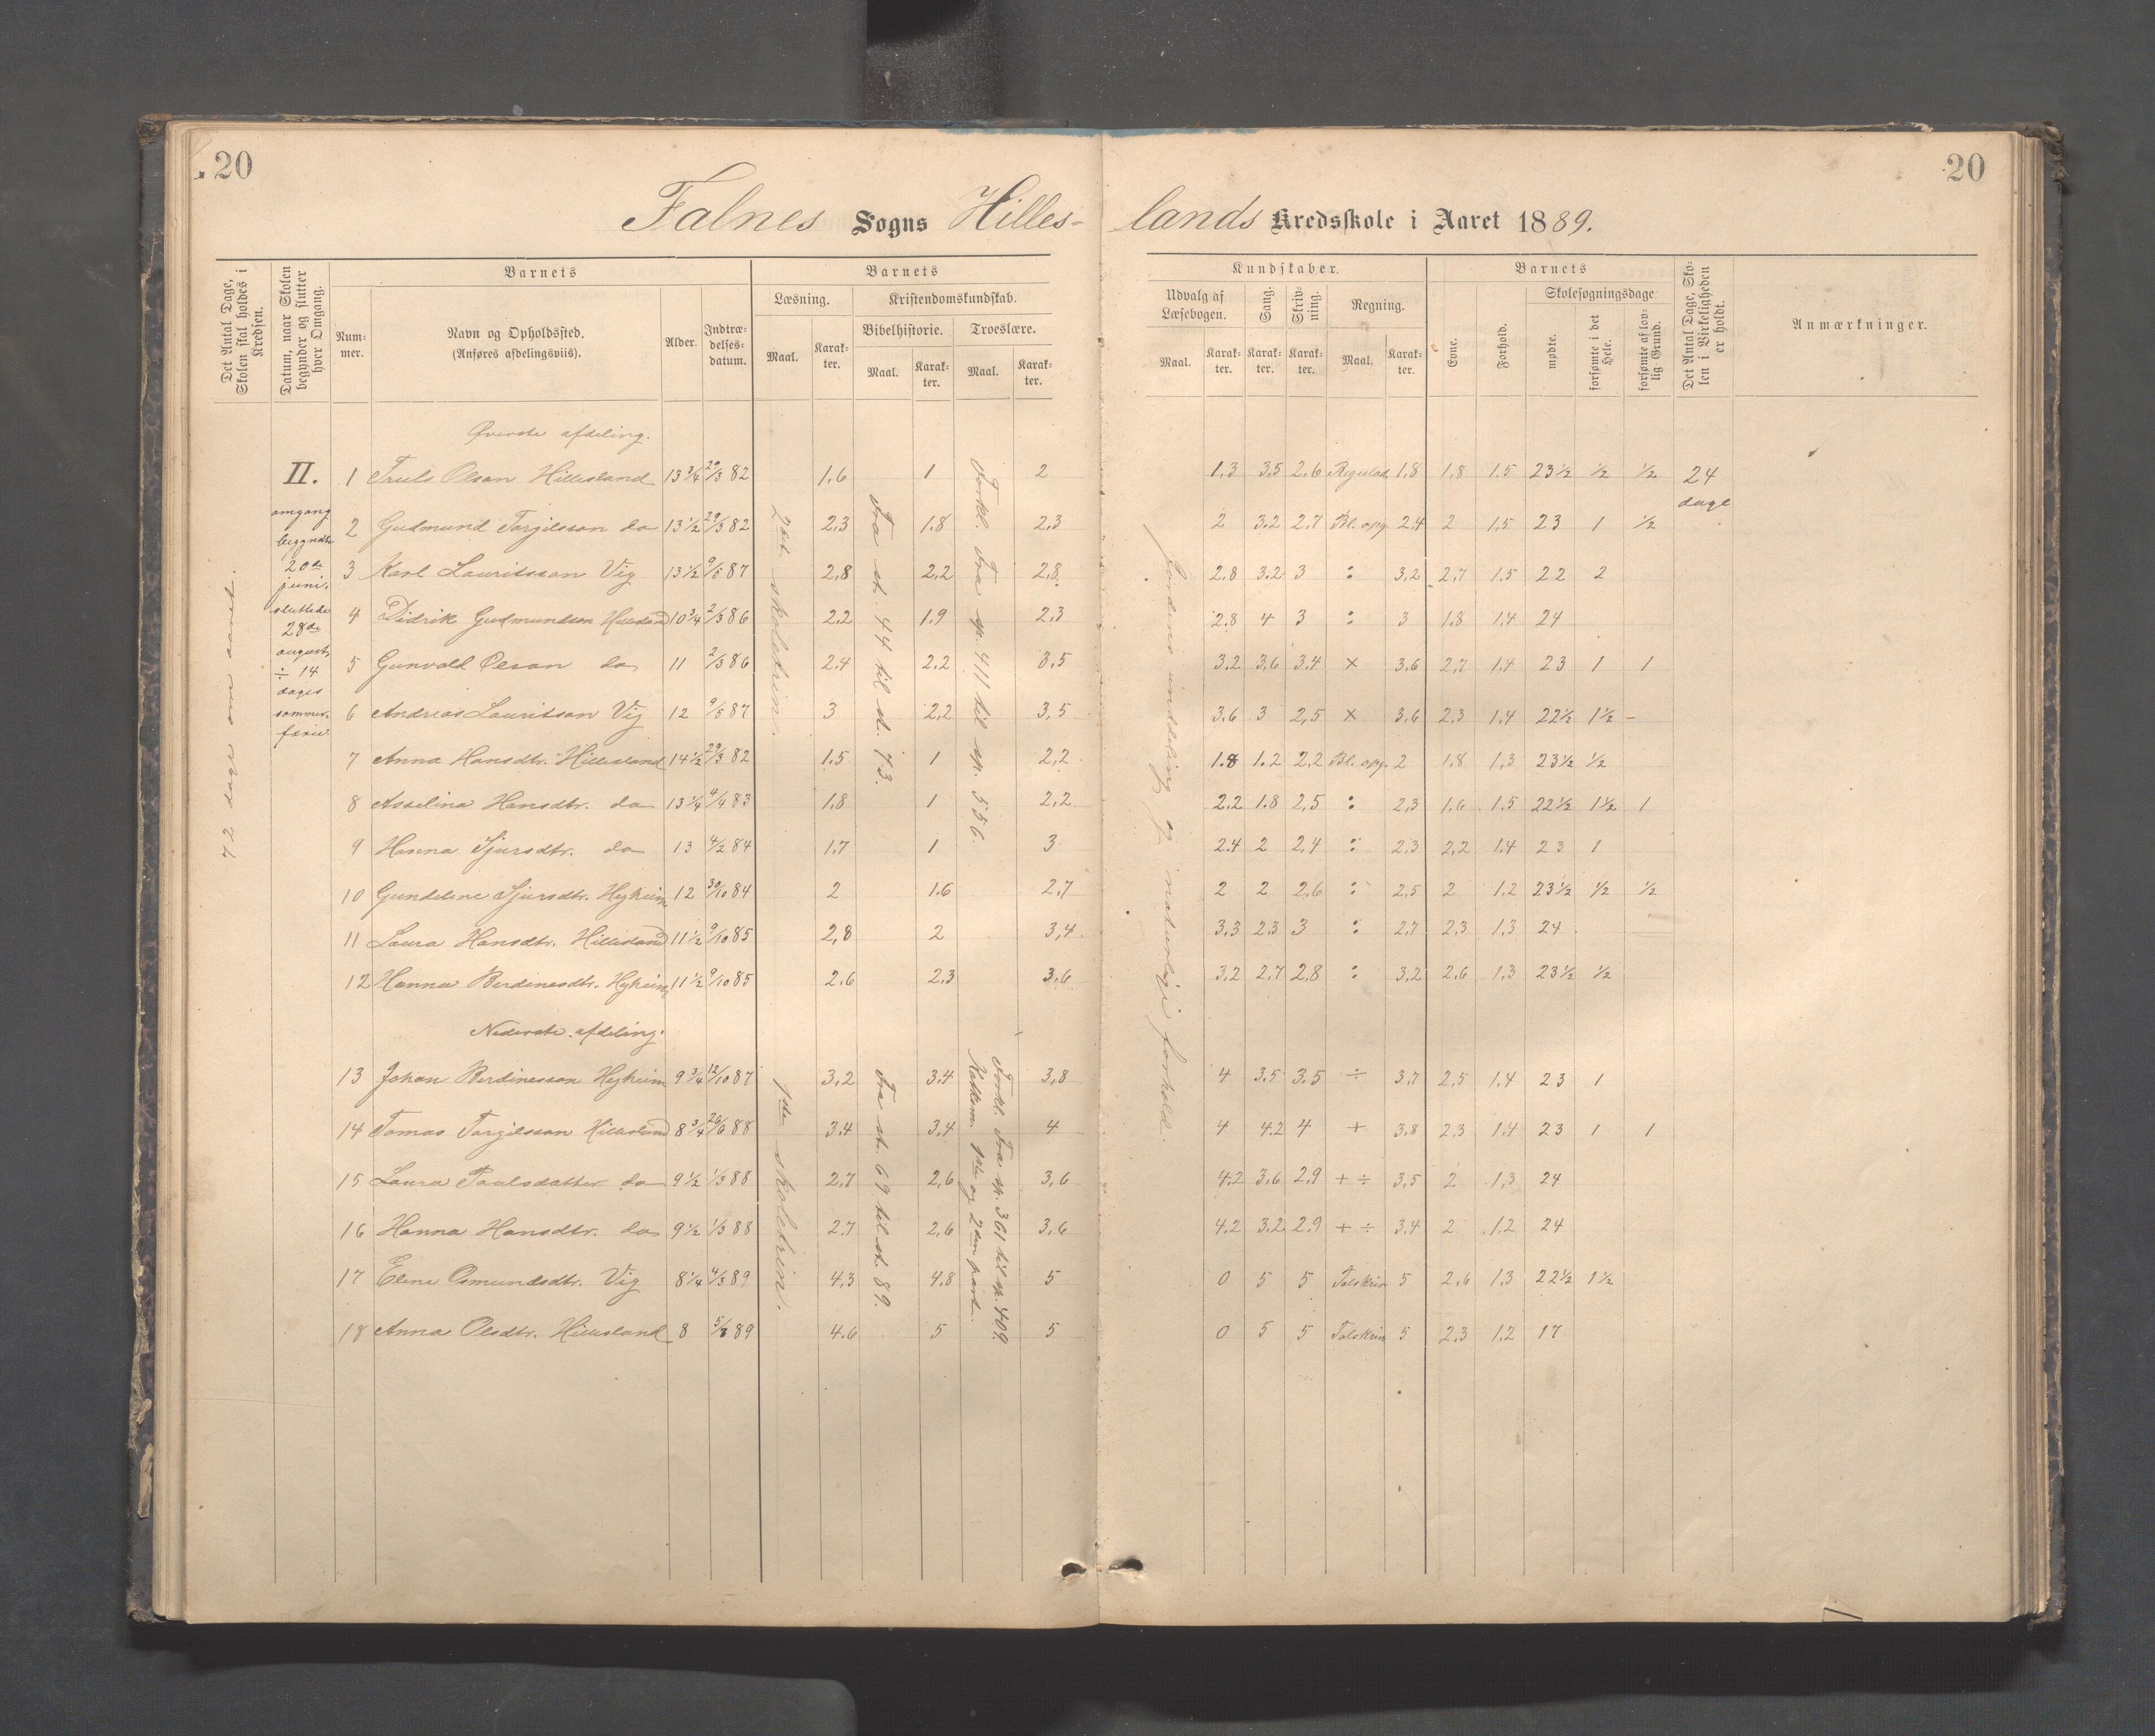 20
20
Falnes Sogns Hilles-
lands Kredsskole i Aaret 1889.
Det Antal Dage, Skolen skal holdes i Kredsen.
Datum, naar Skolen begynder og slutter hver Omgang.
Barnets
Nummer.
Navn og Opholdssted.
(Anføres afdelingsviis).
Alder.
Indtrædelsesdatum.
Barnets
Læsning.
Maal.
Karakter.
Kristendomskundskab.
Bibelhistorie.
Maal.
Karakter.
Troeslære.
Maal.
Karakter.
Kundskaber.
Udvalg af Læsebogen.
Maal.
Karakter.
Sang.
Karakter.
Skrivning.
Karakter.
Regning.
Maal.
Karakter.
Barnets
Evne.
Forhold.
Skolesøgningsdage
mødte.
forsømte i det Hele.
forsømte af lovlig Grund.
Det Antal Dage, Skolen i Virkeligheden er holdt.
Anmærkninger.
72 dage om aaret.
II.
omgang
begyndte
20de
juni.
sluttede
28de
august,
÷ 14
dages
sommer-
ferie
2det skoletrin.
Fra st. 44 til st. 73.
Forkl. Fra sp. 411 til sp. 556.
Jordens inddeling og naturlige forhold.
24
dage
Øverste afdeling.
1 Truls Olsen Hillesland 13 3/4 29/3 82 1.6 1 2 1,3 3.5 2.6 Regulad. 1.8 1.8 1.5 23 1/2 1/2 1/2
2 Gudmund Torgilsson do 13 1/2 29/3 82 2.3 1.8 2.3 2 3.2 2.7 Bl. opg. 2.4 2 1.5 23 1 1/2
3 Karl Lauritsson Vig 13 1/2 9/5 87 2.8 2.2 2.8 2.8 3.2 3 : 3,2 2.7 1.5 22 2
4 Didrik Gudmundsen Hillesland 10 3/4 2/3 86 2.2 1.9 2.3 2.8 4 3 : 3 1.8 1.4 24
5 Gunvald Olsson do 11 2/3 86 2.4 2.2 3.5 3.2 3,6 3.4 × 3.6 2.7 1.4 23 1 1
6 Andreas Lauritson Vig 12 9/5 87 3 2,2 3,5 3.6 3 2,5 × 3.6 2.3 1.4 22 1/2 1 1/2 -
7 Anna Hansdtr. Hillesland 14 1/2 29/3 82 1.5 1 2,2 1.8 1.2 2.2 Bl. opg. 2 1.8 1,3 23 1/2 1/2
8 Asselina Hansdtr. do 13 1/4 4/4 83 1.8 1 2,2 2.2 1.8 2,5 : 2,3 1.6 1.5 22 1/2 1 1/2 1
9 Hanna Sjursdtr. do 13 4/2 84 1.7 1 3 2.4 2 2,4 : 2.3 2,2 1.4 23 1
10 Gundeline Sjursdtr. Hyheim 12 30/10 84 2 1.6 2,7 2 2 2,6 : 2,5 2 1.2 23 1/2 1/2 1/2
11 Laura Hansdtr. Hillesland 11 1/2 9/10 85 2,8 2 3,4 3.3 2.3 3 : 2.7 2.3 1,3 24
12 Hanna Berdinesdtr. Hyheim 11 1/2 9/10 85 2.6 2.3 3.6 3.2 2.7 2.8 : 3.2 2.6 1.3 23 1/2 1/2
Nederste afdeling.
1ste skoletrin.
Fra st. 69 til st. 89.
Forkl. Fra sp. 361 til sp. 409.
Katkism. 1ste og 2den part.
13 Johan Berdinesson Hyheim 9 3/4 12/10 87 3,2 3.4 3,8 4 3.5 3.5 ÷ 3.7 2.5 1.4 23 1
14 Tomas Torgilsson Hillesland 8 3/4 26/6 88 3.4 3,4 4 4 4.2 4 + 3.8 2.3 1.4 23 1 1
15 Laura Paulsdatter do 9 1/2 1/3 88 2,7 2,6 3,6 4.2 3,6 2,9 + ÷ 3,5 2 1,3 24
16 Hanna Hansdtr. do 9 1/2 1/3 88 2.7 2,6 3,6 4.2 3.2 2.9 + ÷ 3.4 2 1.2 24
17 Eline Osmundsdtr. Vig 8 1/4 4/3 89 4.3 4.8 5 0 5 5 Talskriv 5 2.6 1.3 22 1/2 1 1/2
18 Anna Olsdtr. Hillesland 8 5/7 89 4.6 5 5 0 5 5 Talskriv 5 2.3 1.2 17